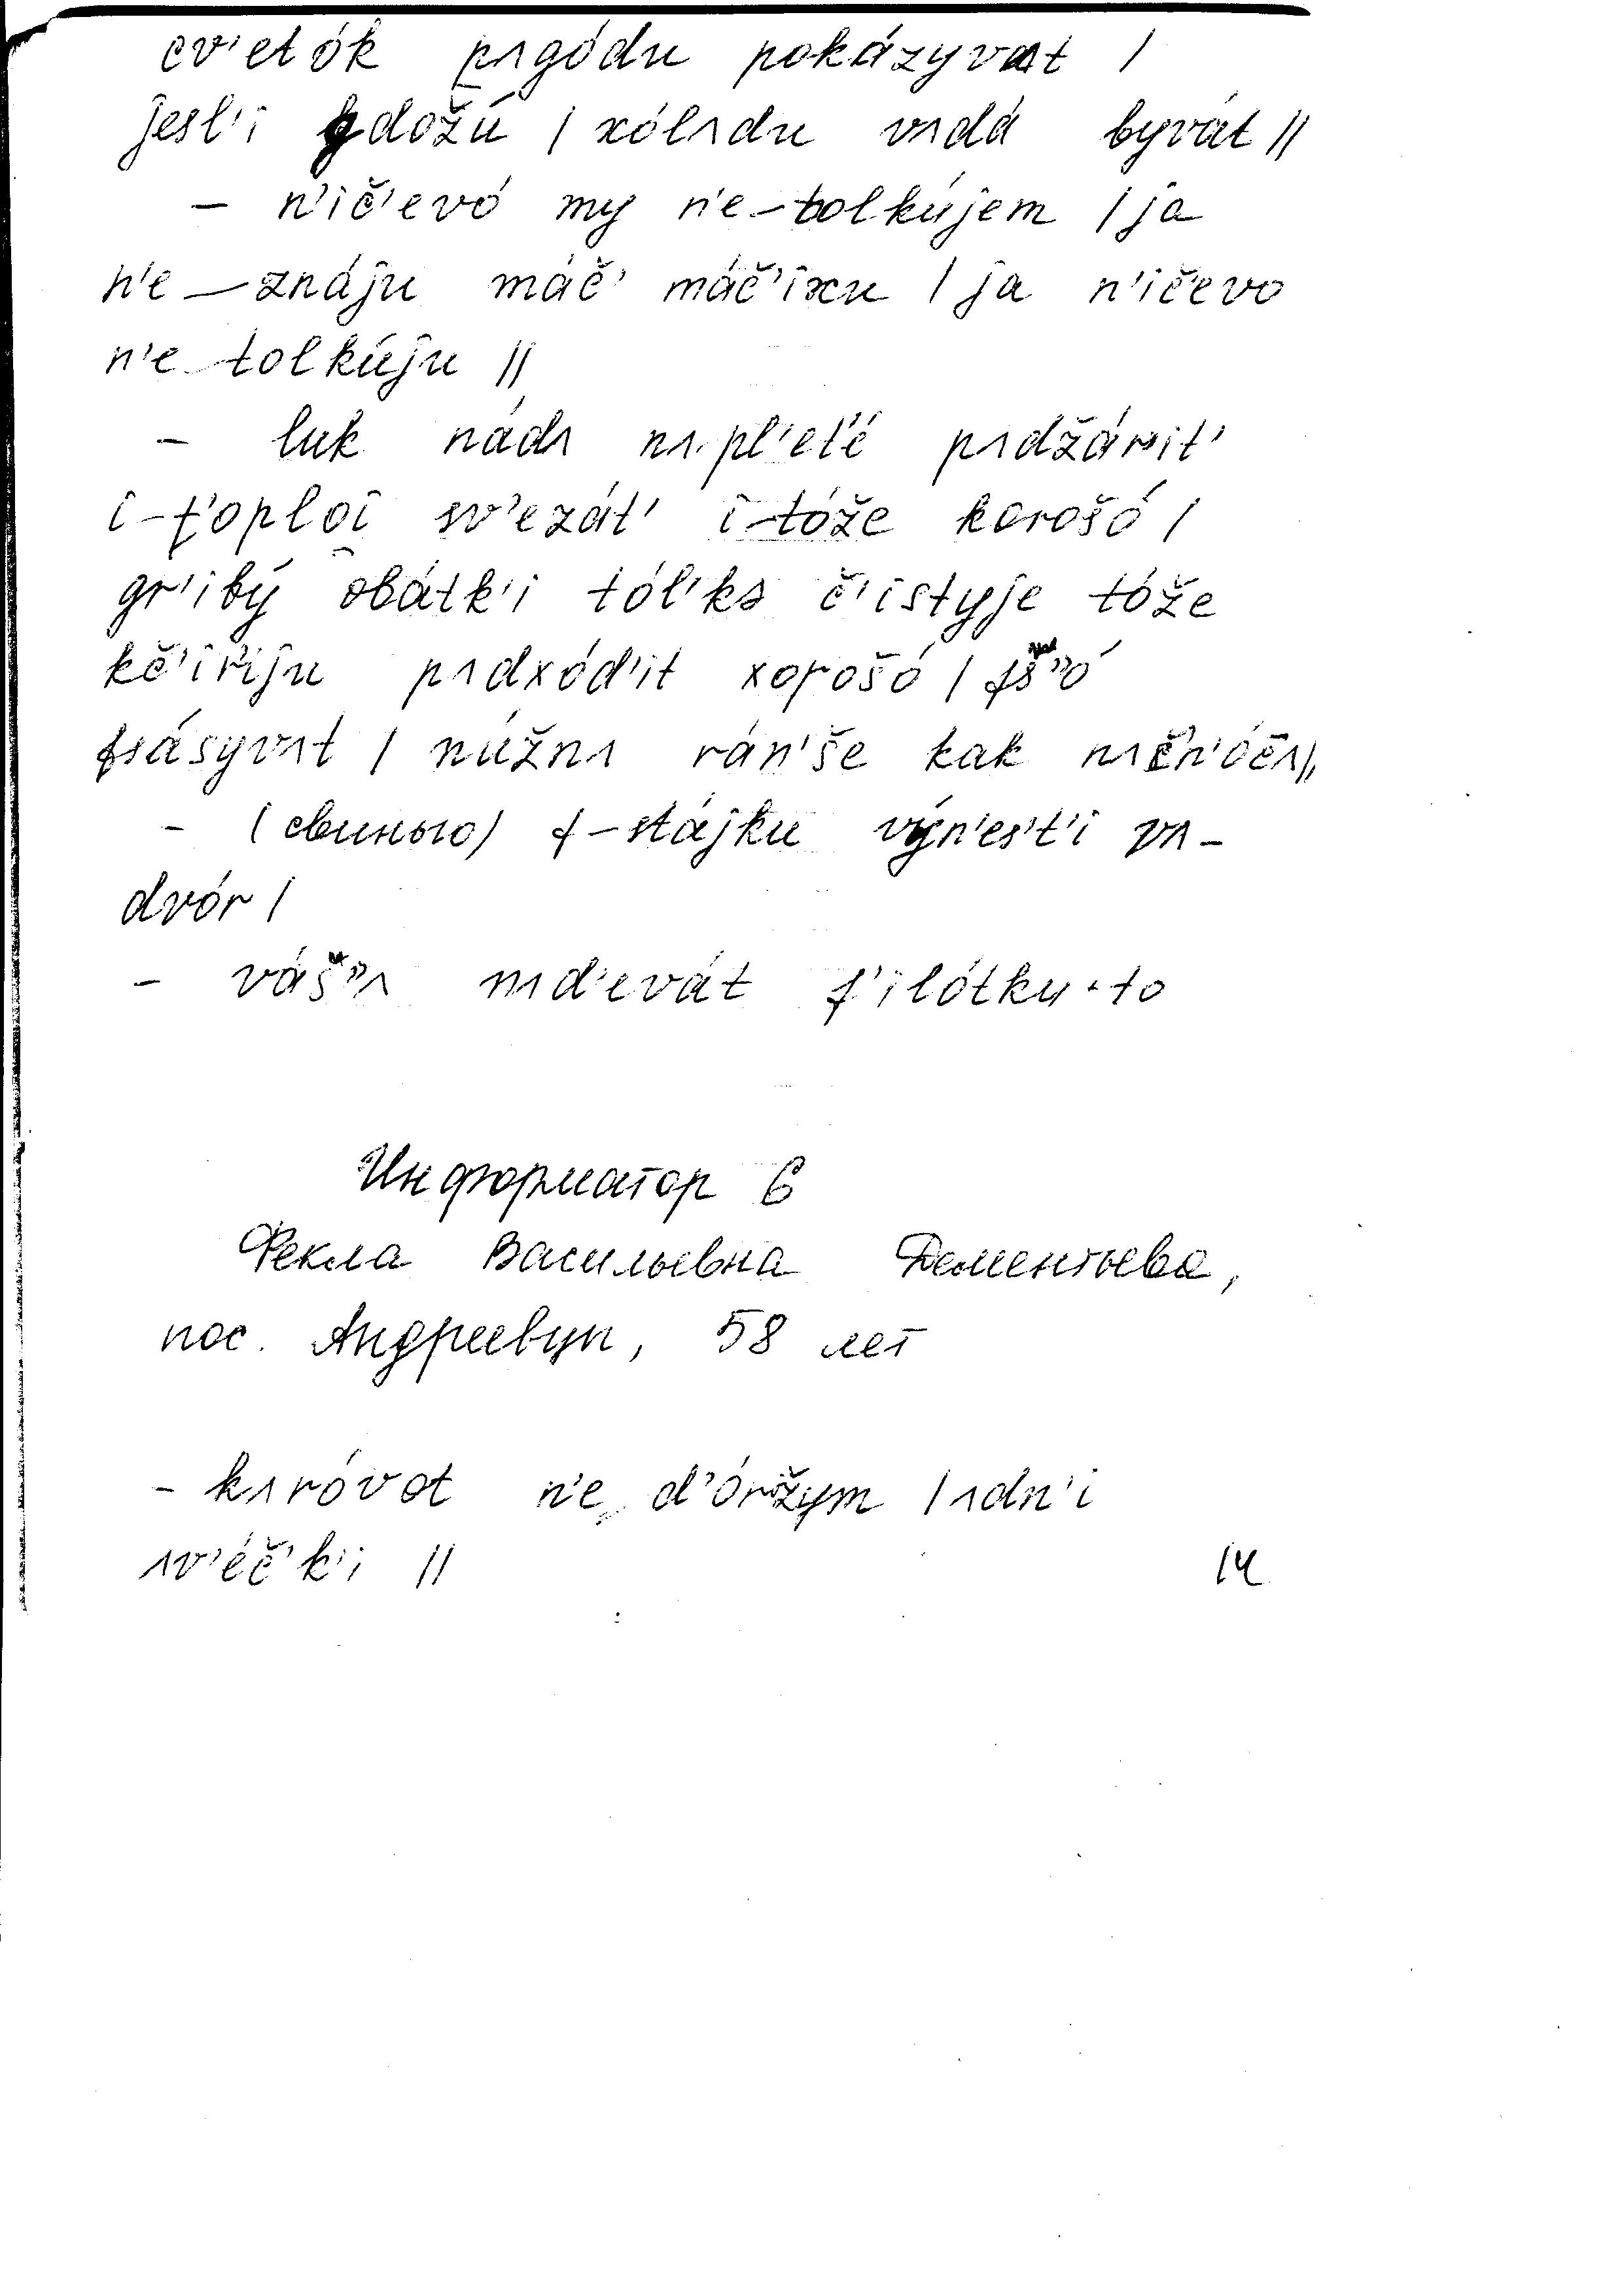 cv'etók pʌgódu pokázyvʌt |
jesl'i gdožú | xólʌdu vʌdá byvát ||
– n'ič'evó my n'e–tolkújem | ja
n'e–znáju máč' máč'ixu | ja n'ičevo
n'e–tolkúju ||
– luk nádʌ nʌ·pl'et'é pʌdžárit'
i–t'oploi sv'ezát' i–tóže korošó |
gr'ibý obátk'i tól'kə č'istyje tóže
kč'ír'iju pʌdxód'it xorošó | fš''ó
fsásyvʌt | núžnʌ rán'še kak nʌčn'óčʌ ||
– (свинью) f–stájku výn'es't'i vʌ–
dvór |
– váš''ʌ nʌd'evát f'ilótku·to
Информатор 6
Фекла Васильевна Дементьева,
пос. Андреевун, 58 лет
– kʌróvot n'e d'óržym | ʌdn'i
ʌv'éč'k'i ||
14